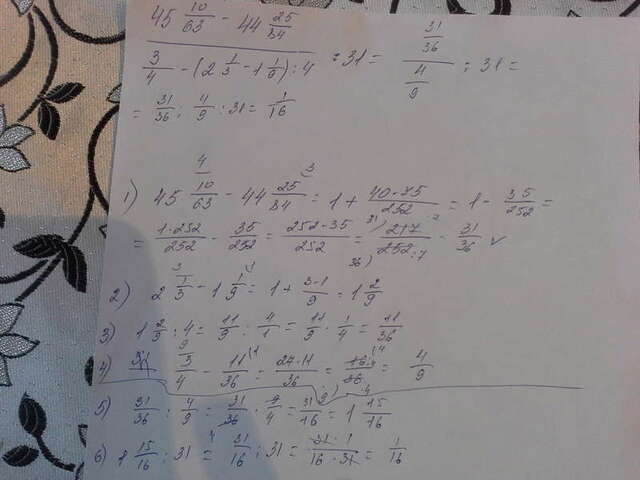 (45 10/63 - 44 25/84) / (3/4 - (2 1/3 - 1 1/9) : 4) : 31 = (31/36) / (4/9) : 31 =
= 31/36 : 4/9 : 31 = 1/16
1) 45 10/63 - 44 25/84 = 1 + (40-75)/252 = 1 - 35/252 =
= (1·252)/252 - 35/252 = (252-35)/252 = 217/252 :7 31/36
2) 2 1/3 - 1 1/9 = 1 + (3-1)/9 = 1 2/9
3) 1 2/9 : 4 = 11/9 : 4/1 = 11/9 · 1/4 = 11/36
4) 3/4 - 11/36 = (27-11)/36 = 16/36 = 4/9
5) 31/36 : 4/9 = 31/36 · 9/4 = 31/16 = 1 15/16
6) 1 15/16 : 31 = 31/16 : 31 = (31·1)/(16·31) = 1/16